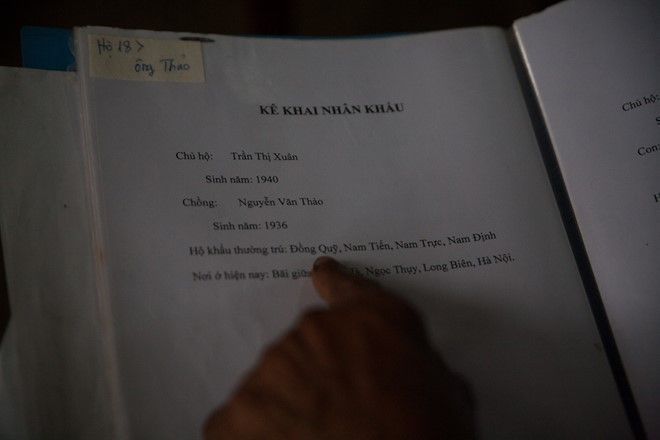 Hộ 18>
ông Thảo
KÊ KHAI NHÂN KHẨU
Chủ hộ: Trần Thị Xuân
Sinh năm: 1940
Chồng: Nguyễn Văn Thảo
Sinh năm: 1936
Hộ khẩu thường trú: Đồng Quỹ, Nam Tiến, Nam Trực, Nam Định
Nơi ở hiện nay: Bãi giữa Ngọc Thụy, Long Biên, Hà Nội.
Chủ hộ:
Con: